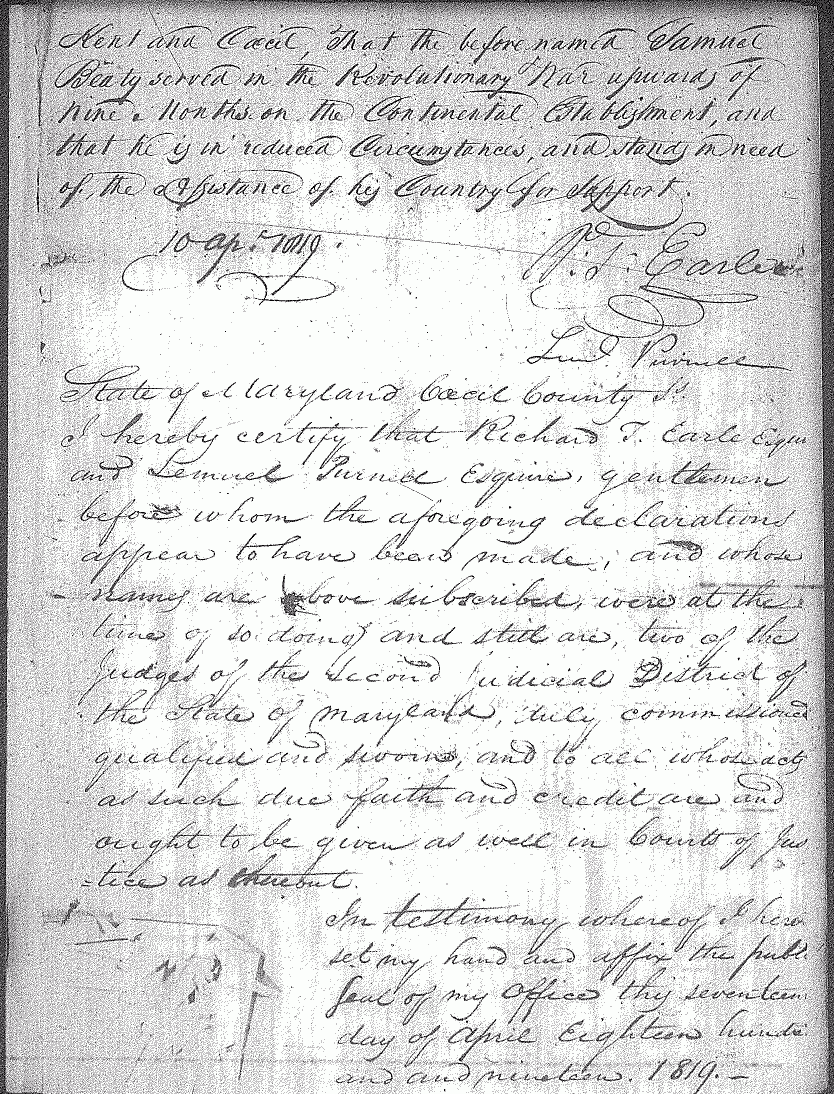 Kent and Cecil, That the before named Samuel
Beaty served in the Revolutionary War upwards of
Nine Months on the Continental Establishment, and
that he is in reduced Circumstances, and stands in need
of the Assistance of his Country for Support.
10 Apr. 1819.
R. T. Earle
Lem. Purnell
State of Maryland Cecil County Ss
I hereby certify that Richard T. Earle Esqui
and Lemuel Purnell Esquire, gentlemen
before whom the aforegoing declarations
appear to have been made, and whose
names are above subscribed, were at the
time of so doing and still are, two of the
Judges of the second Judicial District of
the State of Maryland, duly commissioned
qualified and sworn, and to all whose acts
as such due faith and credit are and
ought to be given as well in Courts of Jus
=tice as thereout.
In testimony whereof I here
set my hand and affix the publ
Seal of my Office this seventeen
day of April Eighteen hund
and and nineteen. 1819.—